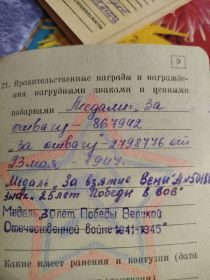 9
21. Правительственные награды и награжде-
ния нагрудными знаками и ценными
подарками Медали: За
отвагу - 867942
"За отвагу" 2798776 от
23 мая - 1947.
Медаль "За взятие Вены"
знак "25 лет Победы в ВОВ"
Медаль 30 лет Победы Великой
Отечественной Войне 1941-1945"
Какие имеет ранения и контузии (дата